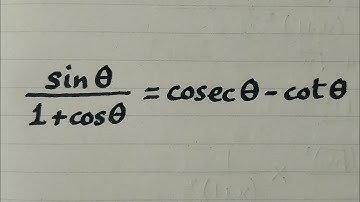 sinθ/1+cosθ = cosecθ - cotθ